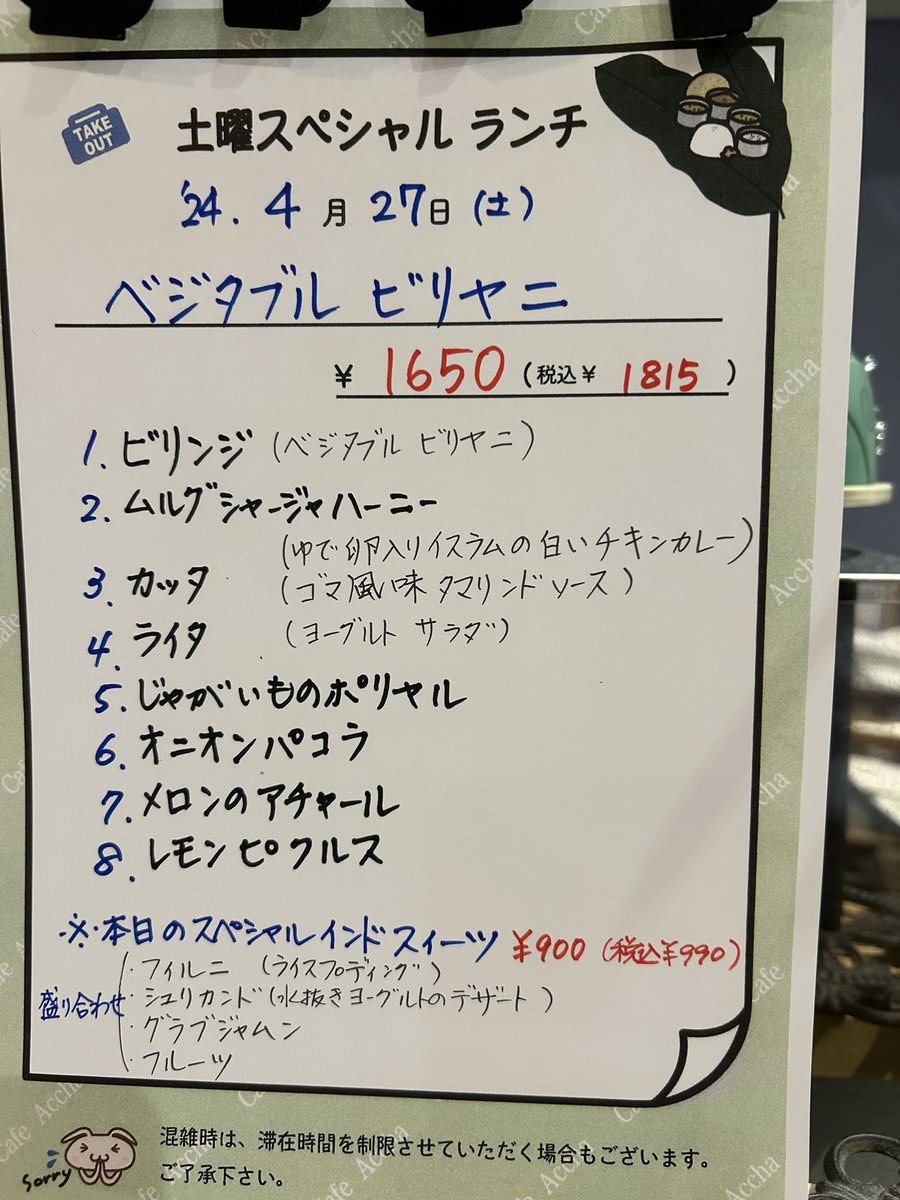 TAKE OUT
土曜スペシャル ランチ
'24. 4月27日(土)
ベジタブル ビリヤニ
¥ 1650 (税込¥ 1815)
1. ビリンジ (ベジタブル ビリヤニ)
2. ムルグシャージャハーニー
(ゆで卵入りイスラムの白いチキンカレー)
3. カッタ (ゴマ風味タマリンドソース)
4. ライタ (ヨーグルト サラダ)
5. じゃがいものポリヤル
6. オニオンパコラ
7. メロンのアチャール
8. レモンピクルス
※本日のスペシャルインドスイーツ ¥900 (税込¥990)
盛り合わせ
・フィルニ (ライスプディング)
・シュリカンド(水抜きヨーグルトのデザート)
・グラブジャムン
・フルーツ
Sorry
混雑時は、滞在時間を制限させていただく場合もございます。
ご了承下さい。
Cafe Accha